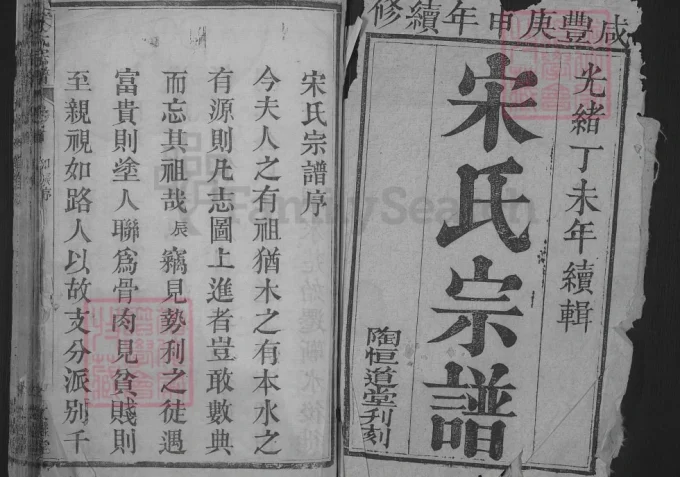 咸豐庚申年續修
光緒丁未年續輯
宋氏宗譜
陶恒道堂刊刻
宋氏宗譜序
今夫人之有祖猶木之有本水之
有源則凡志圖上進者豈敢數典
而忘其祖哉辰竊見勢利之徒遇
富貴則塗人聯為骨肉見貧賤則
至親視如路人以故支分派別千
FamilySearch